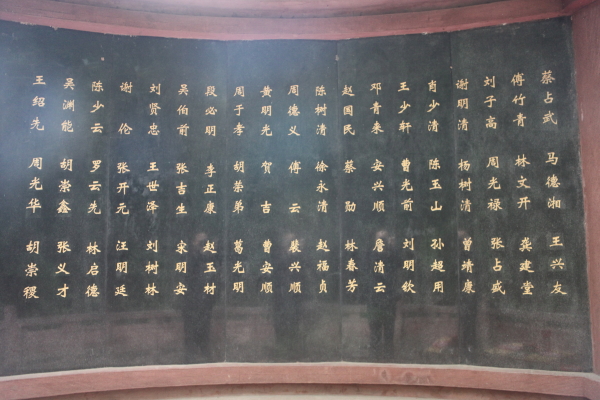 蔡占武 马德湘 王兴友
傅竹青 林文开 龚建堂
刘于高 周光禄 张占盛
谢明清 杨树清 曾靖康
肖少清 陈玉山 孙超用
王少轩 曹光前 刘明钦
邓青来 安兴顺 詹清云
赵国民 蔡勋 林春芳
陈树清 徐永清 赵福贞
周德义 傅云 裴兴顺
黄明光 贺吉 曾安顺
周于孝 胡荣弟 葛光明
段必明 李正康 赵玉材
吴伯前 张吉生 宋明安
刘贤忠 王世泽 刘树林
谢伦 张开元 汪明廷
陈少云 罗云先 林启德
吴渊能 胡崇鑫 张义才
王绍先 周光华 胡崇稷